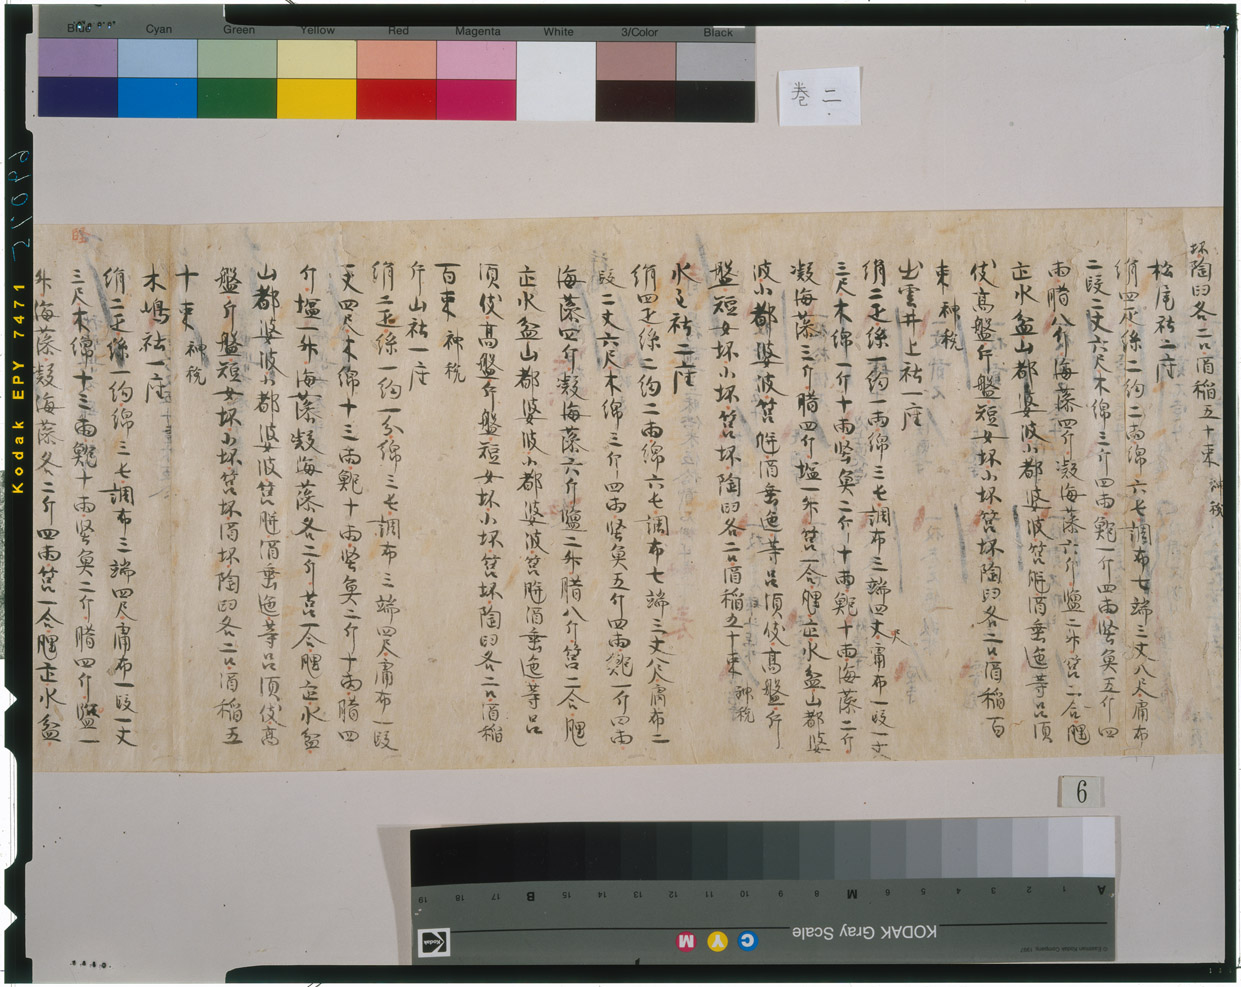 Blue Cyan Green Yellow Red Magenta White 3/Color Black
巻二
坏陶臼各二口酒稲五十束 神税
松尾社二座
絹四疋絲二約二両綿六屯調布七端三丈八尺庸布
二段二丈六尺木綿三斤四両鰒一斤四両堅魚五斤四
両腊八斤海藻四斤凝海藻六斤塩二升筥二合𤭖
缶水盆山都婆波小都婆波筥瓶酒垂匜等呂須
伎高盤片盤短女坏小坏筥坏陶臼各二口酒稲百
束 神税
出雲井上社一座
絹二疋絲一約一両綿三屯調布三端四丈尺庸布一段一丈
三尺木綿一斤十両堅魚二斤十両鰒十両海藻二斤
凝海藻三斤腊四斤塩一升筥一合𤭖缶水盆山都婆
波小都婆波筥瓶酒垂匜等呂須伎高盤片
盤短女坏小坏筥坏陶臼各二口酒稲五十束 神税
水主社二座
絹四疋絲二約二両綿六屯調布七端三丈八尺庸布二
段二丈六尺木綿三斤四両堅魚五斤四両鰒一斤四両
海藻四斤凝海藻六斤塩二升腊八斤筥二合𤭖
缶水盆山都婆波小都婆波筥瓶酒垂匜等呂
須伎高盤片盤短女坏小坏筥坏陶臼各二口酒稲
百束 神税
片山社一座
絹二疋絲一約一分綿三屯調布三端四尺庸布一段
一丈四尺木綿十三両鰒十両堅魚二斤十両腊四
斤塩一升海藻凝海藻各二斤筥一合𤭖缶水盆
山都婆波小都婆波筥瓶酒垂匜等呂須伎高
盤片盤短女坏小坏筥坏酒坏陶臼各二口酒稲五
十束 神税
木嶋社一座
絹二疋絲一約綿三屯調布三端四尺庸布一段一丈
三尺木綿十三両鰒十両堅魚二斤腊四斤塩一
升海藻凝海藻各二斤四両筥一合𤭖缶水盆
6
KODAK Gray Scale
C Y M
Kodak
A 1 2 3 4 5 6 M 8 9 10 11 12 13 14 15 B 17 18 19
Kodak EPY 7471